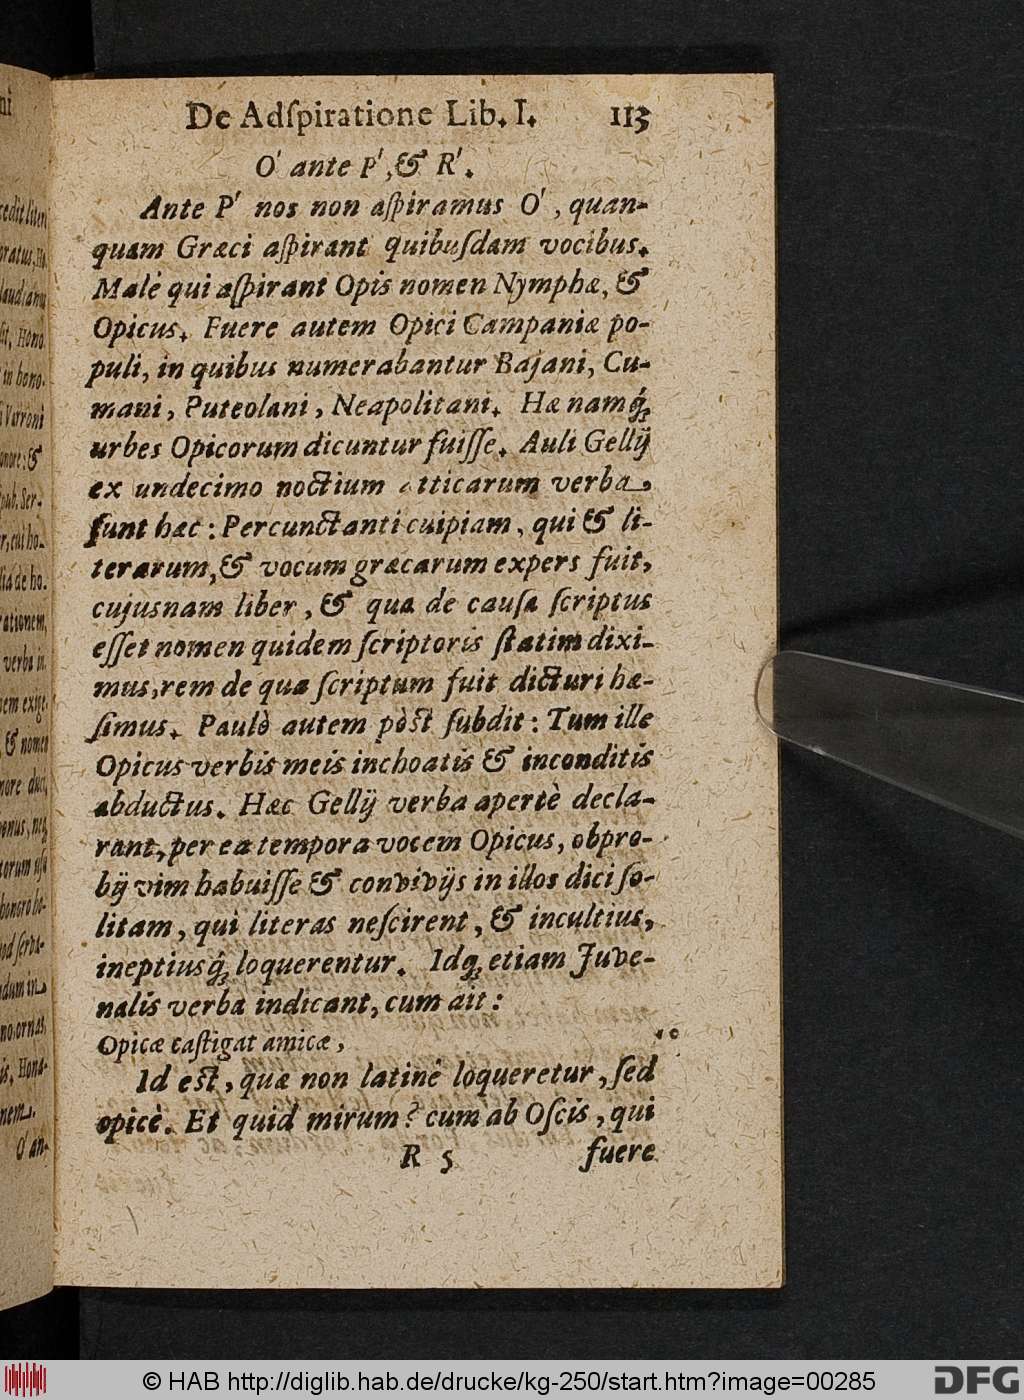 De Adſpiratione Lib. I. 113
O' ante P', & R'.
Ante P' nos non aſpiramus O', quan-
quam Græci aſpirant quibuſdam vocibus.
Malè qui aſpirant Opis nomen Nymphæ, &
Opicus. Fuere autem Opici Campaniæ po-
puli, in quibus numerabantur Bajani, Cu-
mani, Puteolani, Neapolitani. Hæ namq́;
urbes Opicorum dicuntur fuiſſe. Auli Gellij
ex undecimo noctium tticarum verba
ſunt hæc: Percunctanti cuipiam, qui & li-
terarum, & vocum græcarum expers fuit,
cujusnam liber, & qua de cauſa ſcriptus
eſſet nomen quidem ſcriptoris ſtatim dixi-
mus, rem de qua ſcriptum fuit dicturi hæ-
ſimus. Paulò autem pòſt ſubdit: Tum ille
Opicus verbis meis inchoatis & inconditis
abductus. Hæc Gellij verba apertè decla-
rant, per ea tempora vocem Opicus, obpro-
bij vim habuiſſe & convivijs in illos dici ſo-
litam, qui literas neſcirent, & incultius,
ineptiusq́; loquerentur. Idq; etiam Juve-
nalis verba indicant, cum ait:
Opicæ caſtigat amicæ,
Id eſt, quæ non latinè loqueretur, ſed
opicè. Et quid mirum? cum ab Oſcis, qui
R 5 fuere
edit literi
oratus, Ho
laudianus
ſit, Hono
in hono-
Varroni
onore: &
pub. Ser-
r, cui ho-
lia de ho-
rationem,
verba in
nem exige
& nomen
nore duci,
nonus, neq;
torum uſu
honoro ho-
od ſerva-
dum in
no, ornas,
is, Hono-
nem.
O' an-
© HAB http://diglib.hab.de/drucke/kg-250/start.htm?image=00285
DFG